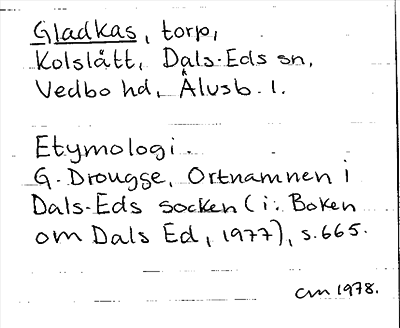 Gladkas, torp,
Kolslätt, Dals-Eds sn,
Vedbo hd, Älvsb. l.
Etymologi.
G. Drougge, Ortnamnen i
Dals-Eds socken (i: Boken
om Dals Ed, 1977), s. 665.
cm 1978.